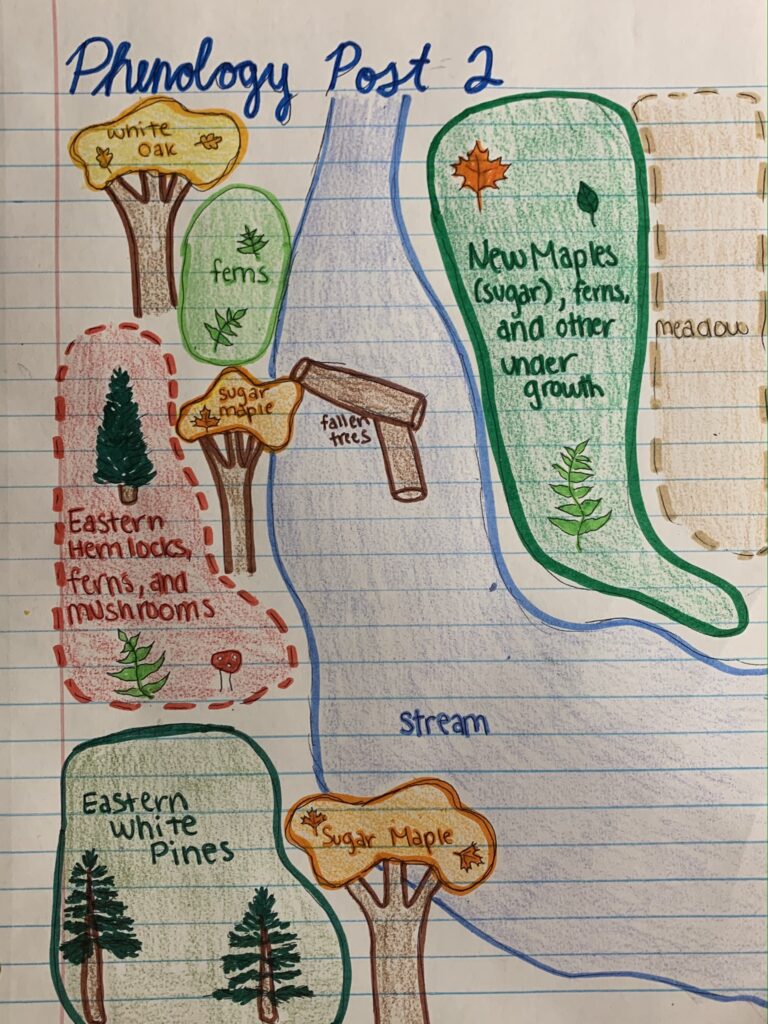 Phenology Post 2
White
Oak
ferns
New Maples
(sugar), ferns,
and other
under
growth
meadow
sugar
maple
fallen
trees
Eastern
Hemlocks,
ferns, and
mushrooms
stream
Eastern
White
Pines
Sugar Maple